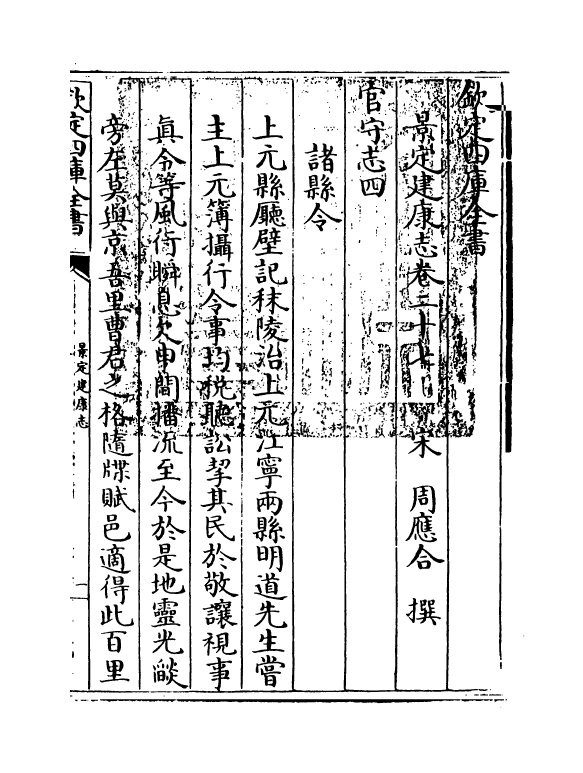 欽定四庫全書
景定建康志卷二十七
宋 周應合 撰
官守志四
諸縣令
上元縣廳壁記秣陵治上元江寧兩縣明道先生嘗
主上元簿攝行令事均稅聽訟挈其民於敬讓視事
真令等風術瞬息欠申間播流至今於是地靈光燄
旁左莫與京吾里曹君之格隨牒賦邑適得此百里
欽定四庫全書
景定建康志